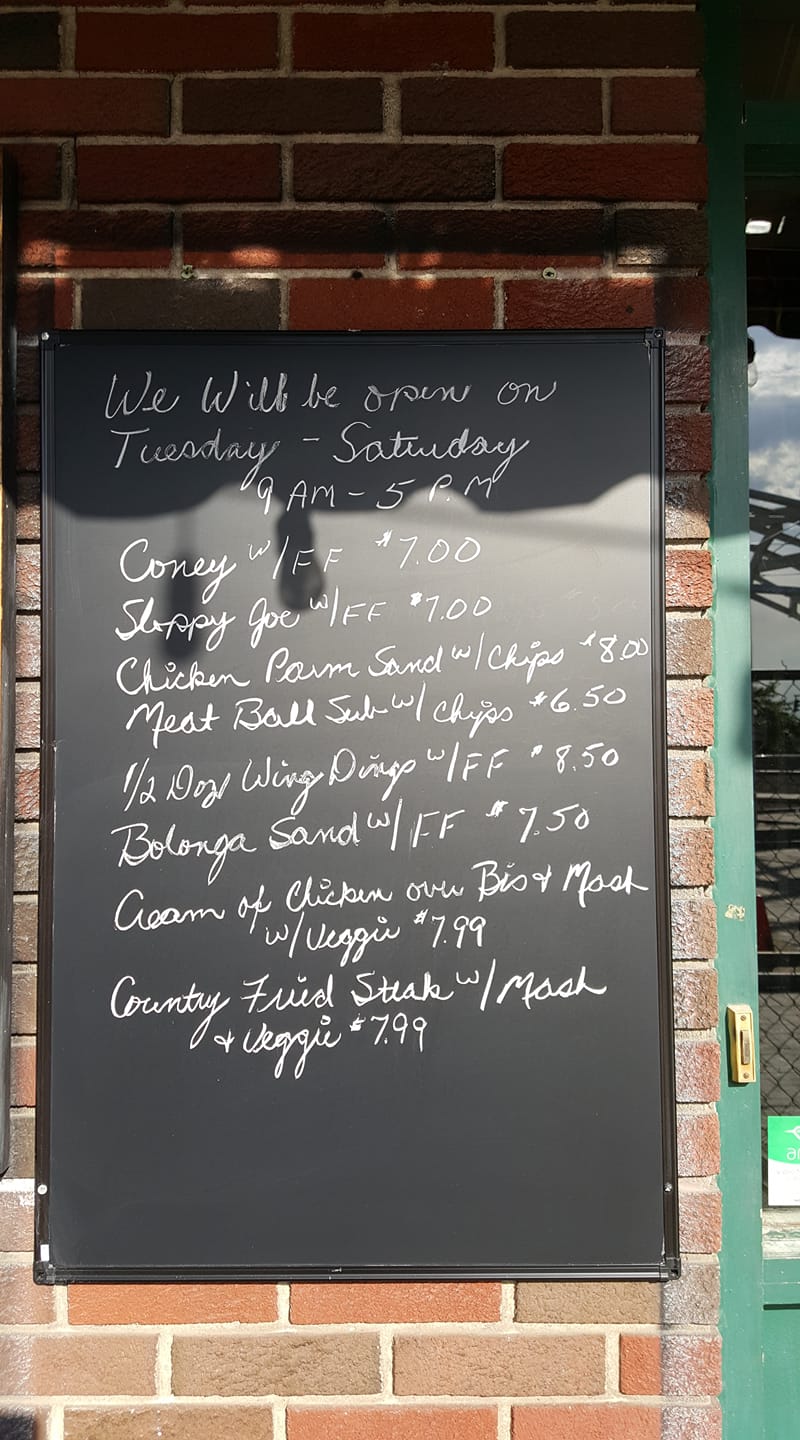 We Will be open on
Tuesday - Saturday
9 AM - 5 P.M
Coney w/FF $7.00
Sloppy Joe w/FF $7.00
Chicken Parm Sand w/Chips $8.00
Meat Ball Sub w/ chips $6.50
1/2 Doz Wing Dings w/FF $8.50
Bolonga Sand w/ FF $7.50
Cream of Chicken over Bis & Mash
w/Veggie $7.99
Country Fried Steak w/Mash
& Veggie $7.99